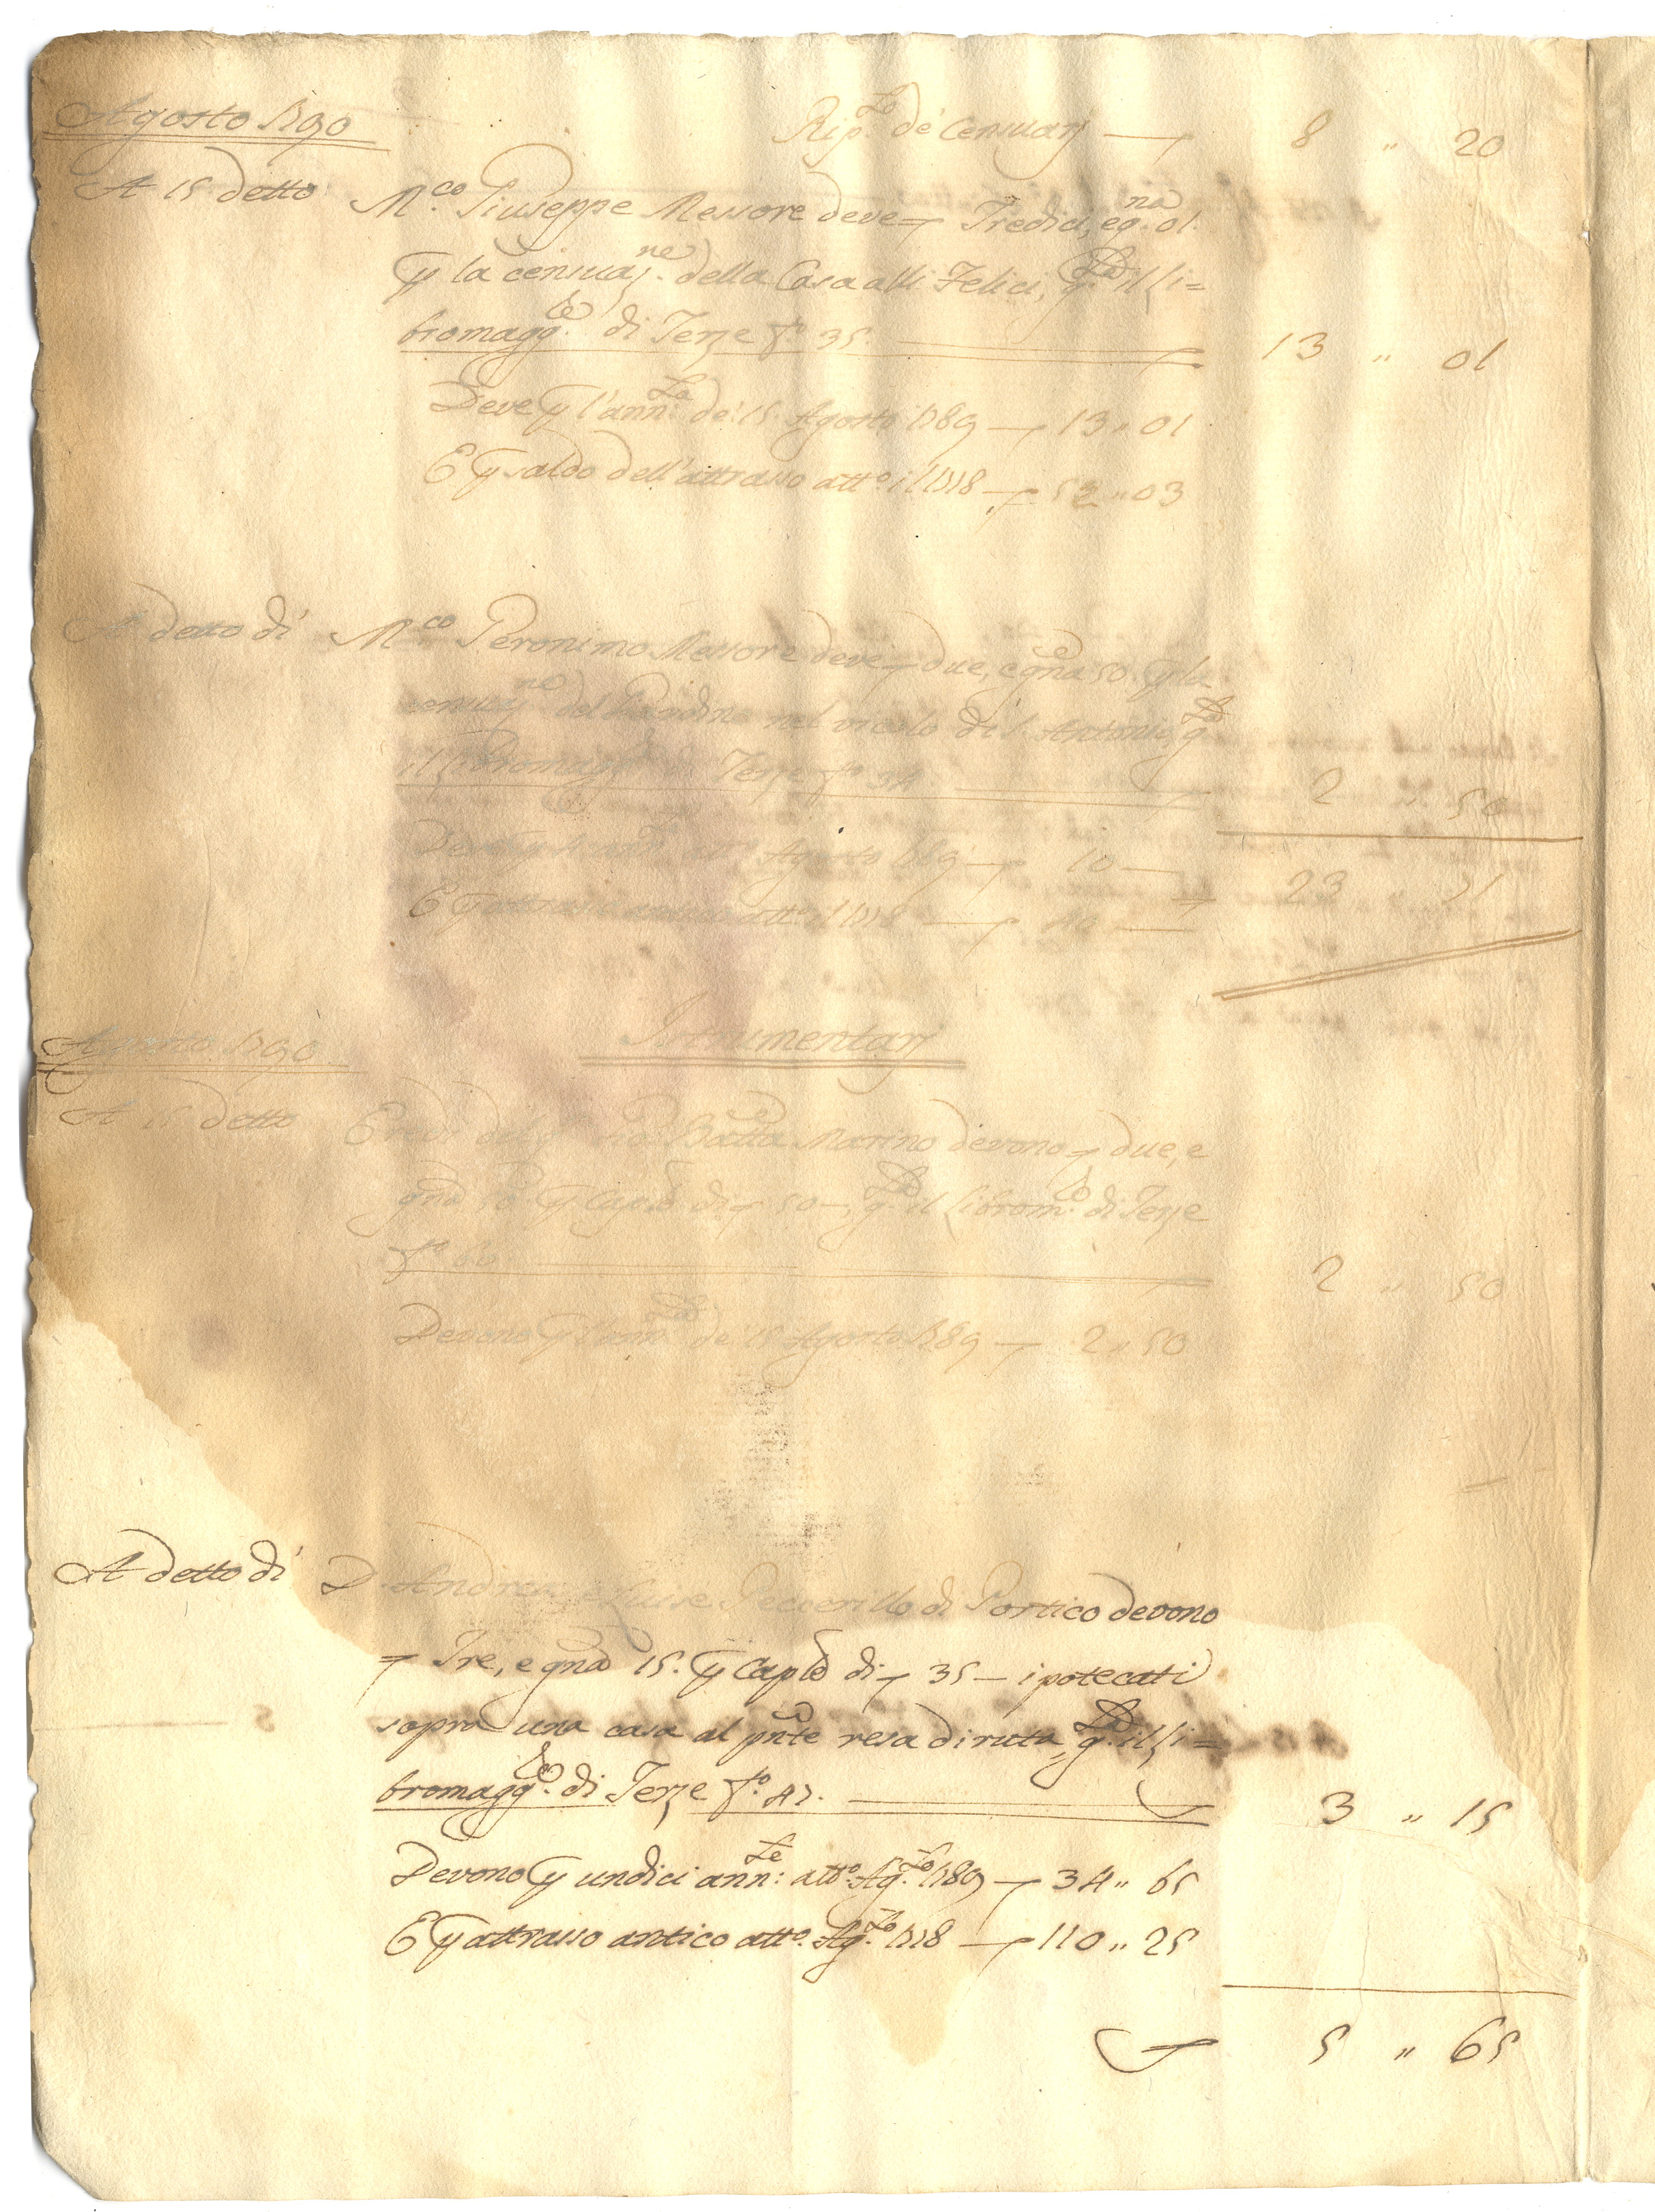 Agosto 1790
Rip.to de' Censuarj — 8 " 20
A 15 detto M.co Giuseppe Messore deve Tredici, e g.na 01.
p la censuaz.ne della Casa alli Felici, g.ta il li=
bro magg.re di Terze f.o 35. 13 " 01
Deve p l'ann.ta de' 15. Agosto 1789 — 13 " 01
E p saldo dell'attrasso att.o il 1778 — 52 " 03
A detto dì M.co Geronimo Messore deve due, e gna 50. p la
censuaz.ne del Giardino nel vicolo di S. Antonio, g.ta
il libro magg.re di Terze f.o 34 2 " 50
Deve p Agosto 1789 — 10 —
23 " 71
E p attrasso antico att.o il 1778 — 40 —
Istrumentarj
Agosto 1790
A 15 detto Eredi del q. Gio: Batta Marino devono due, e
gna 50. p Caple di 50 —, g.ta il libro m.re di Terze
f.o 60. 2 " 50
Devono p l'ann.ta de' 15 Agosto 1789 — 2 " 50
A detto dì D. Andrea, e Luise Peccerillo di Portico devono
Tre, e gna 15. p Caple di 35 — ipotecati
sopra una casa al pnte resa diruta, g.ta il li=
bro magg.re di Terze f.o 47. 3 " 15
Devono p undici ann.te att.o Ag.to 1789 — 34 " 65
E p attrasso antico att.o Ag.to 1778 — 110 " 25
5 " 65